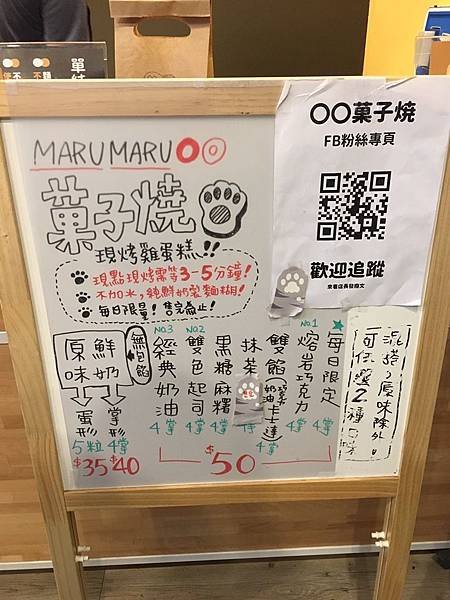 MARUMARU〇〇
菓子燒
現烤雞蛋糕!!
現點現烤需等3-5分鐘!
不加水,純鮮奶製麵糊!
每日限量!售完為止!
〇〇菓子燒
FB粉絲專頁
歡迎追蹤
來看店長發廢文
無內餡
鮮奶
原味
掌形
4掌
$40
蛋形
5粒
$35
★每日限定
4掌
No.1
熔岩巧克力
4掌
雙餡(巧克力 奶油 卡士達)
4掌
抹茶
黑糖麻糬
4掌
No.2
雙色起司
4掌
No.3
經典奶油
4掌
$50
混搭,原味除外。
可任選2種口味
單純